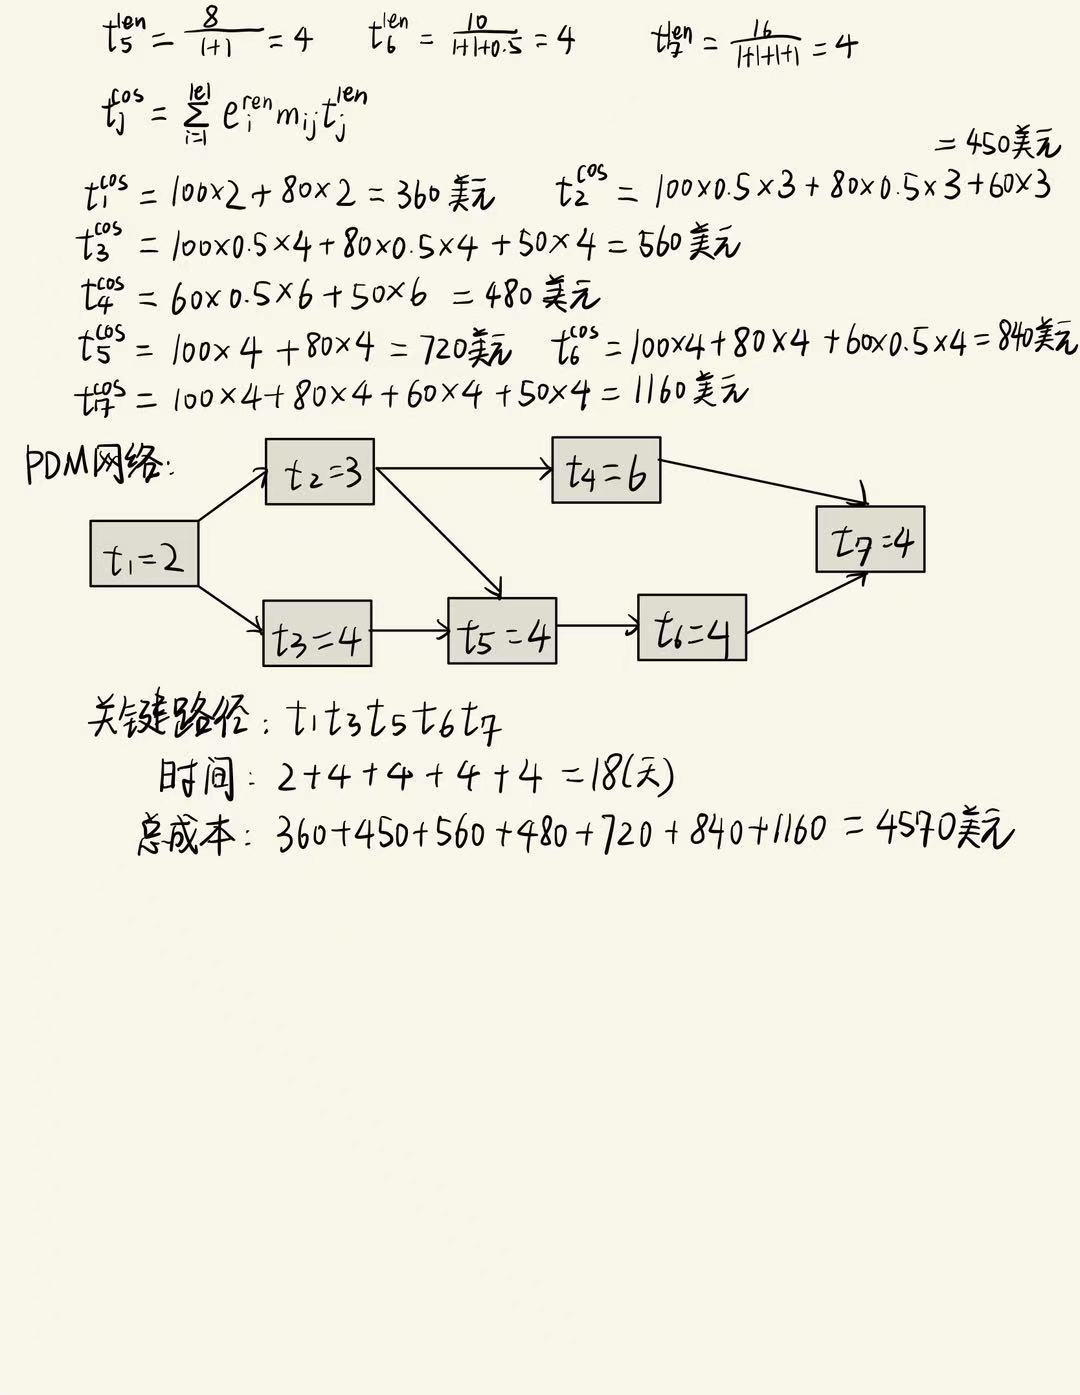 t₅ˡᵉⁿ = 8/(1+1) = 4  t₆ˡᵉⁿ = 10/(1+1+0.5) = 4  t₇ˡᵉⁿ = 16/(1+1+1+1) = 4
tⱼᶜᵒˢ = Σ_{i=1}^{|e|} eᵢʳᵉⁿ mᵢⱼ tⱼˡᵉⁿ
= 450美元
t₁ᶜᵒˢ = 100×2 + 80×2 = 360美元  t₂ᶜᵒˢ = 100×0.5×3 + 80×0.5×3 + 60×3
t₃ᶜᵒˢ = 100×0.5×4 + 80×0.5×4 + 50×4 = 560美元
t₄ᶜᵒˢ = 60×0.5×6 + 50×6 = 480美元
t₅ᶜᵒˢ = 100×4 + 80×4 = 720美元  t₆ᶜᵒˢ = 100×4 + 80×4 + 60×0.5×4 = 840美元
t₇ᶜᵒˢ = 100×4 + 80×4 + 60×4 + 50×4 = 1160美元
PDM网络:
t₂=3
t₄=6
t₁=2
t₇=4
t₃=4
t₅=4
t₆=4
关键路径: t₁t₃t₅t₆t₇
时间: 2+4+4+4+4 = 18(天)
总成本: 360+450+560+480+720+840+1160 = 4570美元